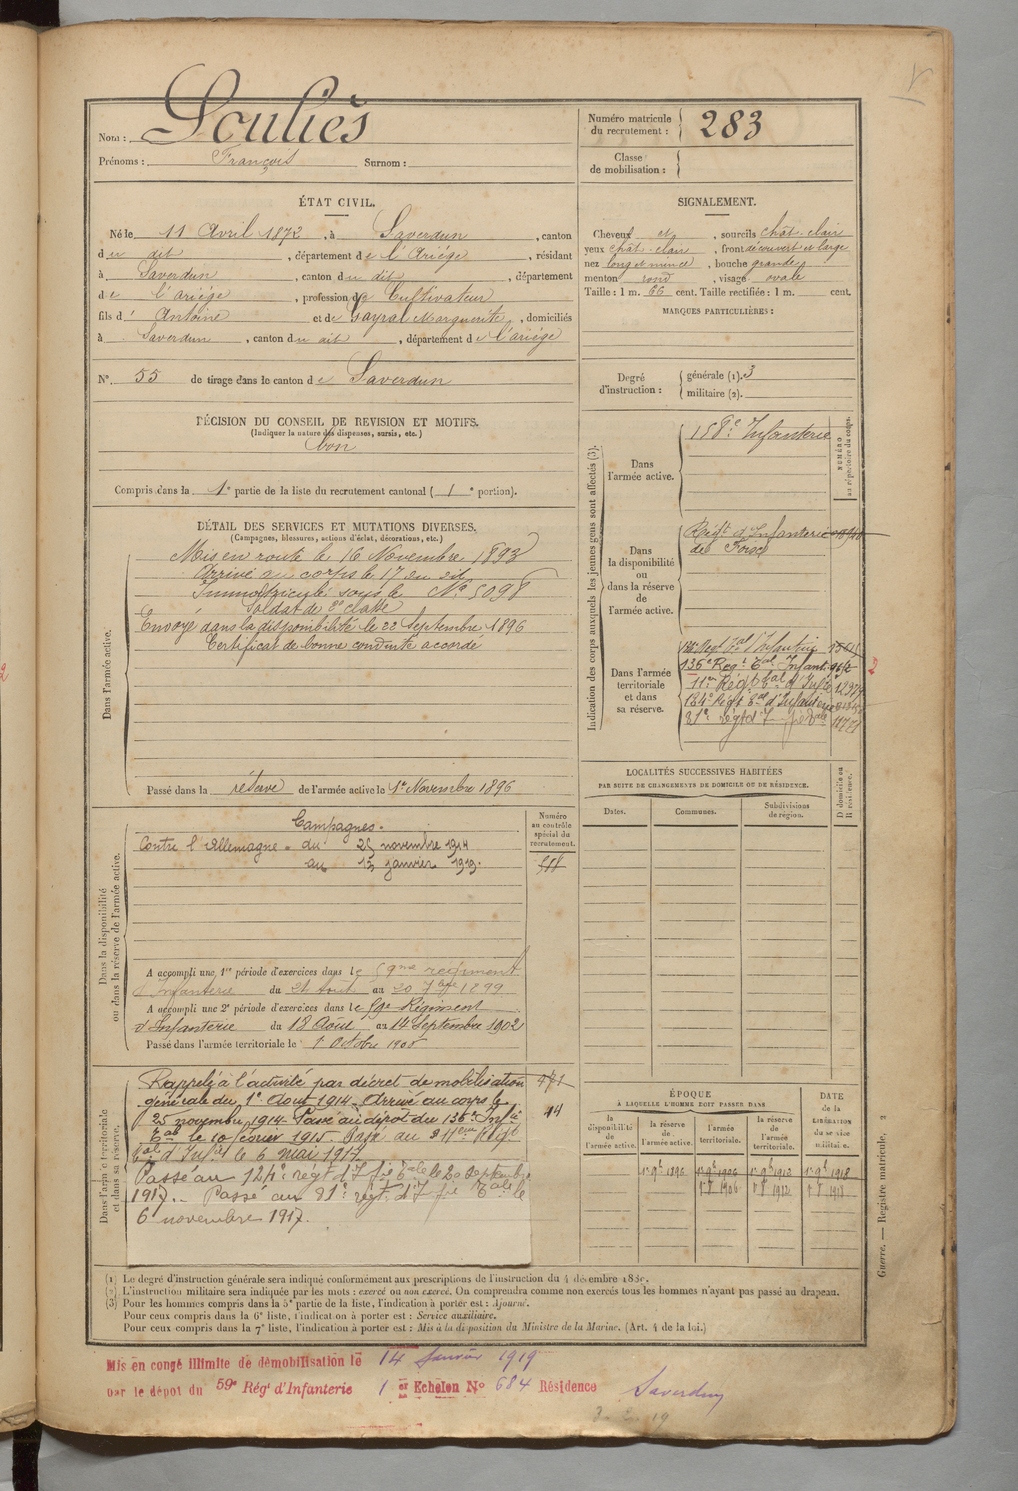 Nom : Souliès
Prénoms : François Surnom :
Numéro matricule
du recrutement : 283
Classe
de mobilisation :
ÉTAT CIVIL.
Né le 11 Avril 1872, à Saverdun, canton
du dit, département de l'Ariège, résidant
à Saverdun, canton du dit, département
de l'ariège, profession de Cultivateur
fils d'Antoine et de Gayral Marguerite, domiciliés
à Saverdun, canton du dit, département de l'ariège
N° 55 de tirage dans le canton de Saverdun
SIGNALEMENT.
Cheveux et, sourcils chât. clair
yeux chât. clair, front découvert et large
nez long et mince, bouche grande
menton rond, visage ovale
Taille : 1 m. 66 cent. Taille rectifiée : 1 m. cent.
MARQUES PARTICULIÈRES :
Degré
d'instruction :
générale (1). 3
militaire (2).
DÉCISION DU CONSEIL DE REVISION ET MOTIFS.
(Indiquer la nature des dispenses, sursis, etc.)
bon
Compris dans la 1e partie de la liste du recrutement cantonal (1e portion).
DÉTAIL DES SERVICES ET MUTATIONS DIVERSES.
(Campagnes, blessures, actions d'éclat, décorations, etc.)
Dans l'armée active.
Mis en route le 16 Novembre 1893
Arrivé au corps le 17 du dit
Immatriculé sous le N° 5098
Soldat de 2e classe
Envoyé dans la disponibilité le 22 Septembre 1896
Certificat de bonne conduite accordé
Passé dans la réserve de l'armée active le 1er Novembre 1896
Indication des corps auxquels les jeunes gens sont affectés (3).
NUMÉRO
au répertoire du corps.
Dans
l'armée active.
158e Infanterie
Dans
la disponibilité
ou
dans la réserve
de
l'armée active.
Régt d'Infanterie
de Foix
Dans l'armée
territoriale
et dans
sa réserve.
136e Regt Eal Infant.
11me Régt tal d'Infie
124e Régt Eal d'Infanterie
81e régt d'I fie Eale
2
LOCALITÉS SUCCESSIVES HABITÉES
PAR SUITE DE CHANGEMENTS DE DOMICILE OU DE RÉSIDENCE.
D domicile ou
R résidence.
Dates.
Communes.
Subdivisions
de région.
Dans la disponibilité
ou dans la réserve de l'armée active.
Numéro
au contrôle
spécial du
recrutement.
Campagnes.
Contre l'Allemagne - du 25 novembre 1914
au 13 janvier 1919.
A accompli une 1re période d'exercices dans le 59me régiment
d'Infanterie du 24 Aout au 20 7bre 1899
A accompli une 2e période d'exercices dans le 59e Régiment
d'Infanterie du 18 Août au 14 Septembre 1902
Passé dans l'armée territoriale le 1r Octobre 1906
Dans l'armée territoriale
et dans sa réserve.
Rappelé à l'activité par décret de mobilisation 471
générale du 1er Aout 1914. Arrivé au corps le
25 novembre 1914. Passé au dépôt du 136e Infie 14
Eal le 10 février 1915. Passé au 211eme Régt
tal d'Infie le 6 mai 1917
Passé au 124e régt d'I fie Eale le 20 septembre
1917. - Passé au 81e régt d'I fie Eale le
6 novembre 1917.
ÉPOQUE
À LAQUELLE L'HOMME DOIT PASSER DANS
la
disponibilité
de
l'armée active.
la réserve
de
l'armée active.
l'armée
territoriale.
la réserve
de
l'armée
territoriale.
DATE
de la
LIBÉRATION
du service
militaire.
1r 9bre 1896 1r 9bre 1906 1r 9bre 1912 1r 9bre 1918
(1) Le degré d'instruction générale sera indiqué conformément aux prescriptions de l'instruction du 4 décembre 1889.
(2) L'instruction militaire sera indiquée par les mots : exercé ou non exercé. On comprendra comme non exercés tous les hommes n'ayant pas passé au drapeau.
(3) Pour les hommes compris dans la 5e partie de la liste, l'indication à porter est : Ajourné.
Pour ceux compris dans la 6e liste, l'indication à porter est : Service auxiliaire.
Pour ceux compris dans la 7e liste, l'indication à porter est : Mis à la disposition du Ministre de la Marine. (Art. 4 de la loi.)
Guerre. — Registre matricule. 2
Mis en congé illimité de démobilisation le 14 Janvier 1919
par le dépôt du 59e Rég' d'Infanterie 1er Echelon N° 684 Résidence Saverdun